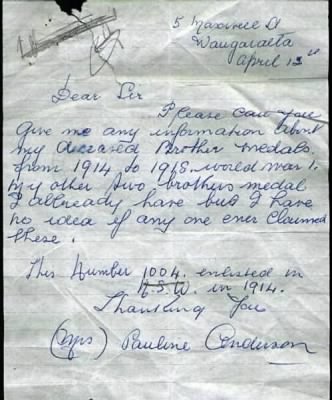 5 Maxwell St
Wangaratta
April 13th
Dear Sir
Please can you
give me any information about
my deceased Brother medals.
from 1914 to 1918. world war 1.
my other two brothers medal
I allready have but I have
no idea if any one ever claimed
these.
This Number 1004. enlisted in
N.S.W. in 1914.
Thanking You
(Mrs) Pauline Anderson